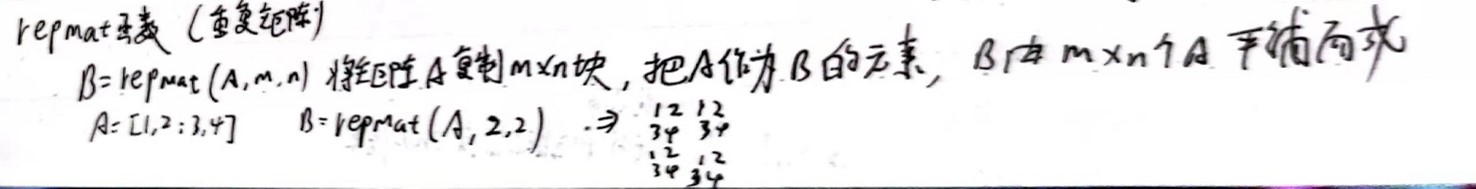 repmat函数 (重复矩阵)
B=repmat(A,m,n) 将矩阵A复制m×n块, 把A作为B的元素, B由m×n个A平铺而成
A=[1,2;3,4] B=repmat(A,2,2) ⇒ 12 12
34 34
12 12
34 34